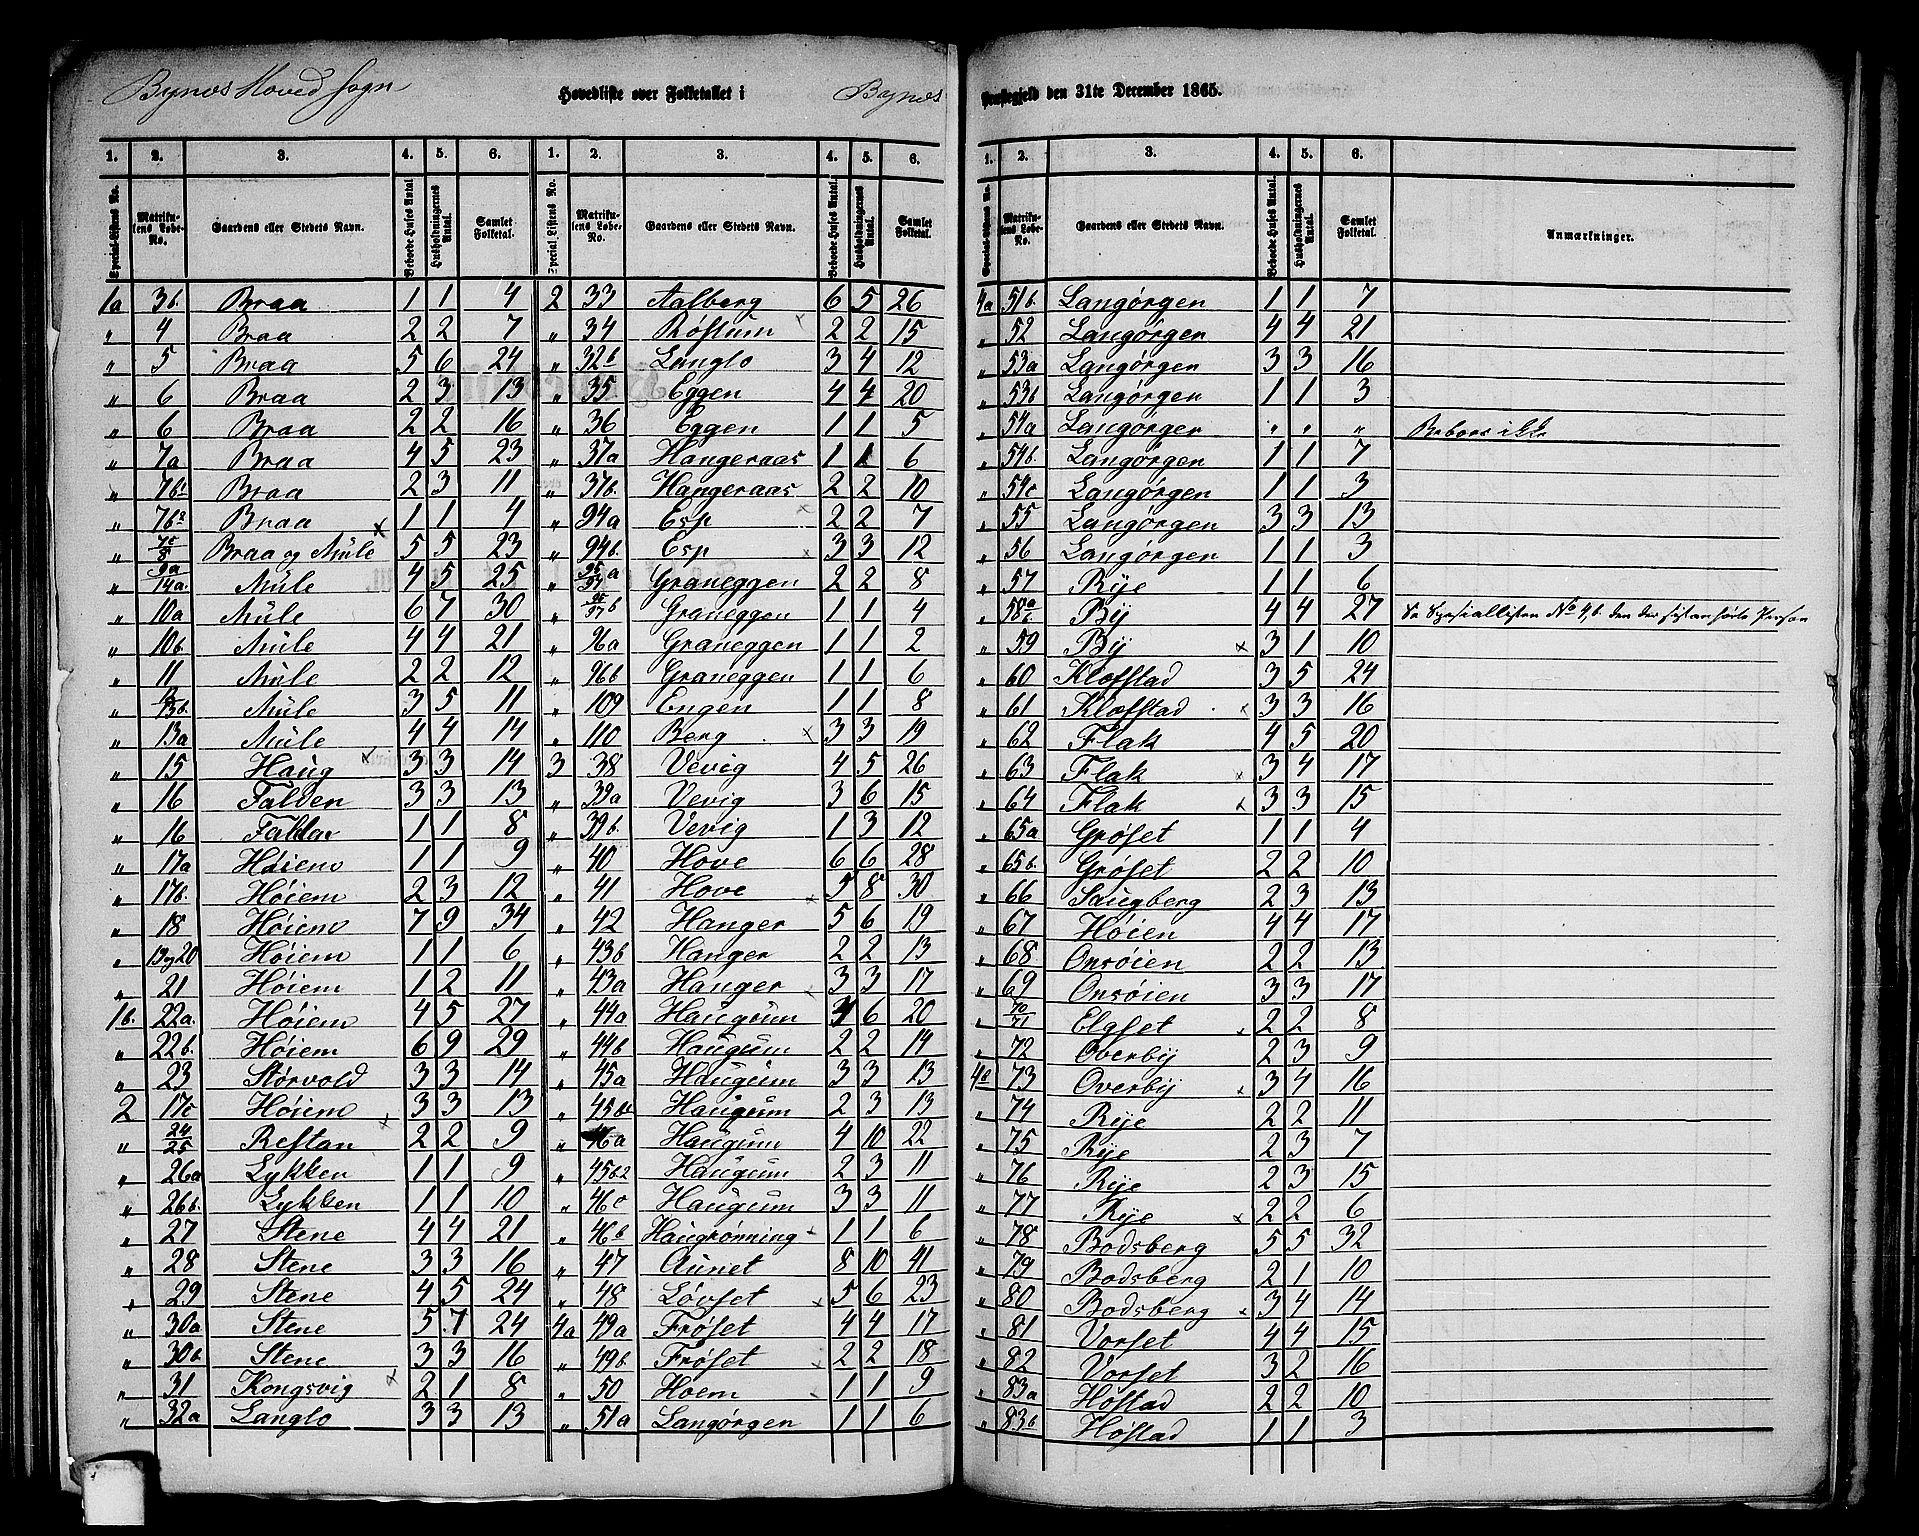 Bynæs Hoved Sogn
Hovedliste over Folketallet i Bynæs Præstegjeld den 31te December 1865.
1. 2. 3. 4. 5. 6. 1. 2. 3. 4. 5. 6.
Special-Listens No. Matrikulens Løbe-No. Gaardens eller Stedets Navn. Beboede Huses Antal Husholdningernes Antal. Samlet Folketal. Special-Listens No. Matrikulens Løbe-No. Gaardens eller Stedets Navn. Beboede Huses Antal. Husholdningernes Antal. Samlet Folketal.
1a 3b. Braa 1 1 4 2 33 Aalberg 6 5 26
„ 4 Braa 2 2 7 „ 34 Røstum 2 2 15
„ 5 Braa 5 6 24 „ 32b Langlo 3 4 12
„ 6 Braa 2 3 13 „ 35 Eggen 4 4 20
„ 6 Braa 2 2 16 „ 36 Eggen 1 1 5
„ 7a Braa 4 5 23 „ 37a Hangeraas 1 1 6
„ 7b1 Braa 2 3 11 „ 37b. Hangeraas 2 2 10
„ 7b2 Braa 1 1 4 „ 94a Esp 2 2 7
„ 7c/8 Braa og Mule 5 5 23 „ 94b. Esp 3 3 12
„ 9a/14a. Mule 4 5 25 „ 95/97 a Graneggen 2 2 8
„ 10a Mule 6 7 30 „ 95/97 b Graneggen 1 1 4
„ 10b. Mule 4 4 21 „ 96a Graneggen 1 1 2
„ 11 Mule 2 2 12 „ 96b Graneggen 1 1 6
„ 13b. Mule 3 5 11 „ 109 Engen 1 1 8
„ 13a Mule 4 4 14 „ 110 Berg 3 3 19
„ 15 Haug 3 3 14 3 38 Vevig 4 5 26
„ 16 Falden 3 3 13 „ 39a Vevig 3 6 15
„ 16 1 1 8 „ 39b. Vevig 1 3 12
„ 17a Høiem 1 1 9 „ 40 Hove 6 6 28
„ 17b. Høiem 2 3 12 „ 41 Hove 5 8 30
„ 18 Høiem 7 9 34 „ 42 Hanger 5 6 19
„ 19 og 20 Høiem 1 1 6 „ 43b Hanger 2 2 13
„ 21 Høiem 1 2 11 „ 43a Hanger 3 3 17
1b. 22a. Høiem 4 5 27 „ 44a Haugum 6 20
„ 22b. Høiem 6 9 29 „ 44b Haugum 2 2 14
„ 23 Størvold 3 3 14 „ 45a Haugum 3 3 13
2 17c Høiem 3 3 13 „ Haugum 2 3 13
„ 24/25 Restan 2 2 9 „ 46a Haugum 4 10 22
„ 26a Lykken 1 1 9 „ 45b2 Haugum 2 3 11
„ 26b. Lykken 1 1 10 „ 46c Haugum 3 3 11
„ 27 Stene 4 4 21 „ 46b Haugrønning 1 1 6
„ 28 Stene 3 3 16 „ 47 Aunet 8 10 41
„ 29 Stene 4 5 24 „ 48 Løvset 5 6 23
„ 30a Stene 5 7 24 4a 49a Frøset 4 4 17
„ 30b Stene 3 3 16 „ 49b. Frøset 2 2 18
„ 31 Kongsvig 2 1 8 „ 50 Hoem 1 1 9
„ 32a Langlo 3 3 13 „ 51a Langørgen 1 1 6
1. 2. 3. 4. 5. 6.
Special-Listens No. Matrikulens Løbe-No. Gaardens eller Stedets Navn. Beboede Huses Antal. Husholdningernes Antal. Samlet Folketal. Anmærkninger.
4a 51b. Langørgen 1 1 7
„ 52 Langørgen 4 4 21
„ 53a Langørgen 3 3 16
„ 53b Langørgen 1 1 3
„ 54a Langørgen „ „ „ Beboes ikke
„ 54b. Langørgen 1 1 7
„ 54c Langørgen 1 1 3
„ 55 Langørgen 3 3 13
„ 56 Langørgen 1 1 3
„ 57 Rye 1 1 6
„ 58a By 4 4 27 Se Speciallisten No 4b. den der sidst anførte Person
„ 59 By 3 1 10
„ 60 Klæfstad 3 5 24
„ 61 Klæfstad 3 3 16
„ 62 Flak 4 5 20
„ 63 Flak 3 4 17
„ 64 Flak 3 3 15
„ 65a Grøset 1 1 4
„ 65b. Grøset 2 2 10
„ 66 Saugberg 2 3 13
„ 67 Høien 4 4 17
„ 68 Onsøien 2 2 13
„ 69 Onsøien 3 3 17
„ 70/71 Elgset 2 2 8
„ 72 Overby 2 3 9
4b 73 Overby 3 4 16
„ 74 Rye 2 2 11
„ 75 Rye 2 3 7
„ 76 Rye 2 3 15
„ 77 Rye 2 2 6
„ 78 Bodsberg 5 5 32
„ 79 Bodsberg 2 1 10
„ 80 Bodsberg 3 4 14
„ 81 Vorset 4 4 15
„ 82 Vorset 3 2 16
„ 83a Høstad 2 2 10
„ 83b Høstad 1 1 3